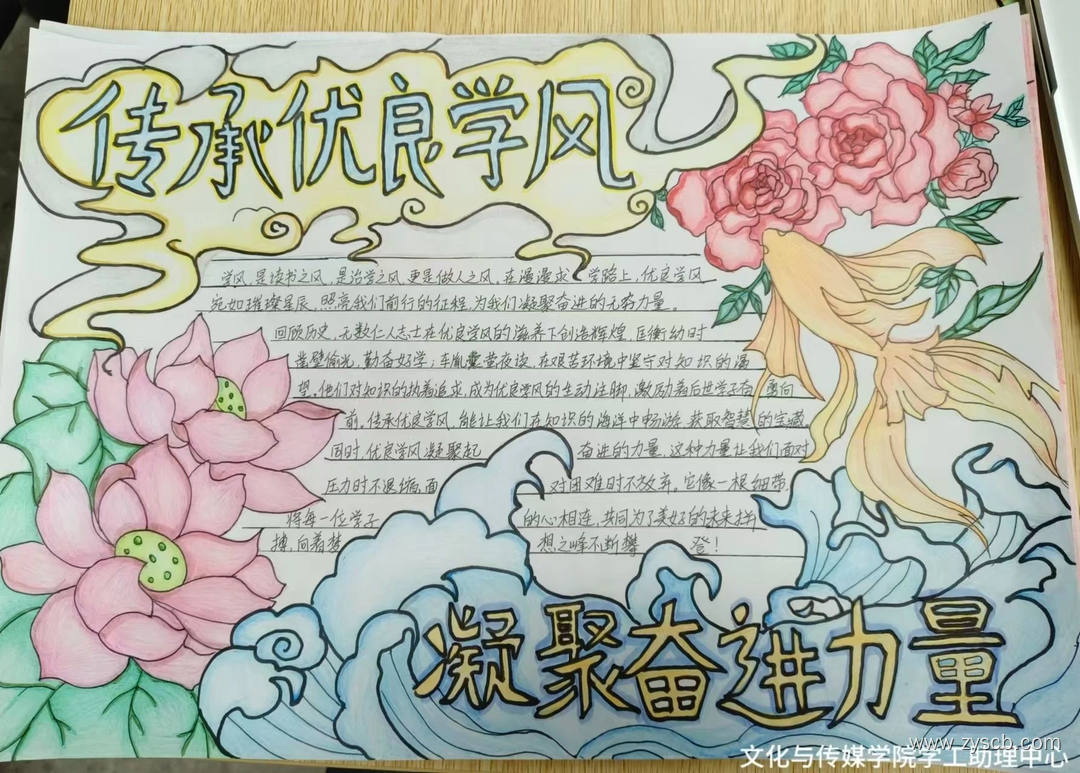 传承优良学风
学风,是读书之风,是治学之风,更是做人之风。在漫漫求学路上,优良学风
宛如璀璨星辰,照亮我们前行的征程,为我们凝聚奋进的无穷力量。
回顾历史,无数仁人志士在优良学风的滋养下创造辉煌,匡衡幼时
凿壁偷光,勤奋好学;车胤囊萤夜读,在艰苦环境中坚守对知识的渴
望。他们对知识的执着追求,成为优良学风的生动注脚,激励着后进学子奋勇向
前。传承优良学风,能让我们在知识的海洋中畅游,获取智慧的宝藏。
同时,优良学风凝聚起奋进的力量,这种力量让我们面对
压力时不退缩,面对困难时不放弃。它像一根细带,
将每一位学子的心相连,共同为了美好的未来拼
搏,向着梦想之峰不断攀登!
凝聚奋进力量
www.zyscb.com
文化与传媒学院学工助理中心